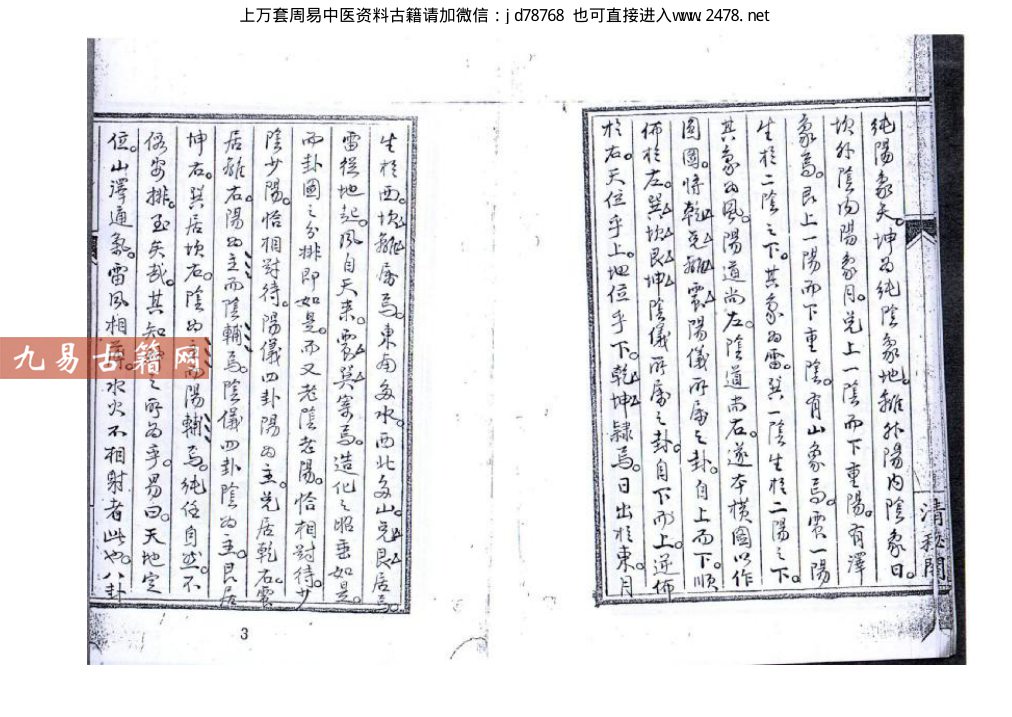 上万套周易中医资料古籍请加微信：jd78768 也可直接进入www.2478.net
純陽象天。坤為純陰象地。離外陽內陰象日。
坎外陰內陽象月。兌上一陰而下重陽。有澤
象焉。艮上一陽而下重陰。有山象焉。震一陽
生於二陰之下。其象為雷。巽一陰生於二陽之下。
其象為風。陽道尚左。陰道尚右。遂本橫圖以作
圓圖。將乾兌離震陽儀所屬之卦。自上而下。順
佈於左。巽坎艮坤陰儀所屬之卦。自下而上。逆佈
於右。天位乎上。地位乎下。乾坤隸焉。日出於東。月
清秘閣
生於西。坎離屬焉。東南多水。西北多山。兌艮居焉。
雷從地起。風自天來。震巽寓焉。造化之昭垂如是。
而卦圖之分排即如是。而又老陰老陽。恰相對待。少
陰少陽。恰相對待。陽儀四卦陽為主。兌居乾右。震
居離右。陽為主而陰輔焉。陰儀四卦陰為主。艮居
坤右。巽居坎右。陰為主而陽輔焉。純任自然。不
假安排。至矣哉。其知之所為乎。易曰。天地定
位。山澤通氣。雷風相薄。水火不相射者此也。八卦
九易古籍网
3